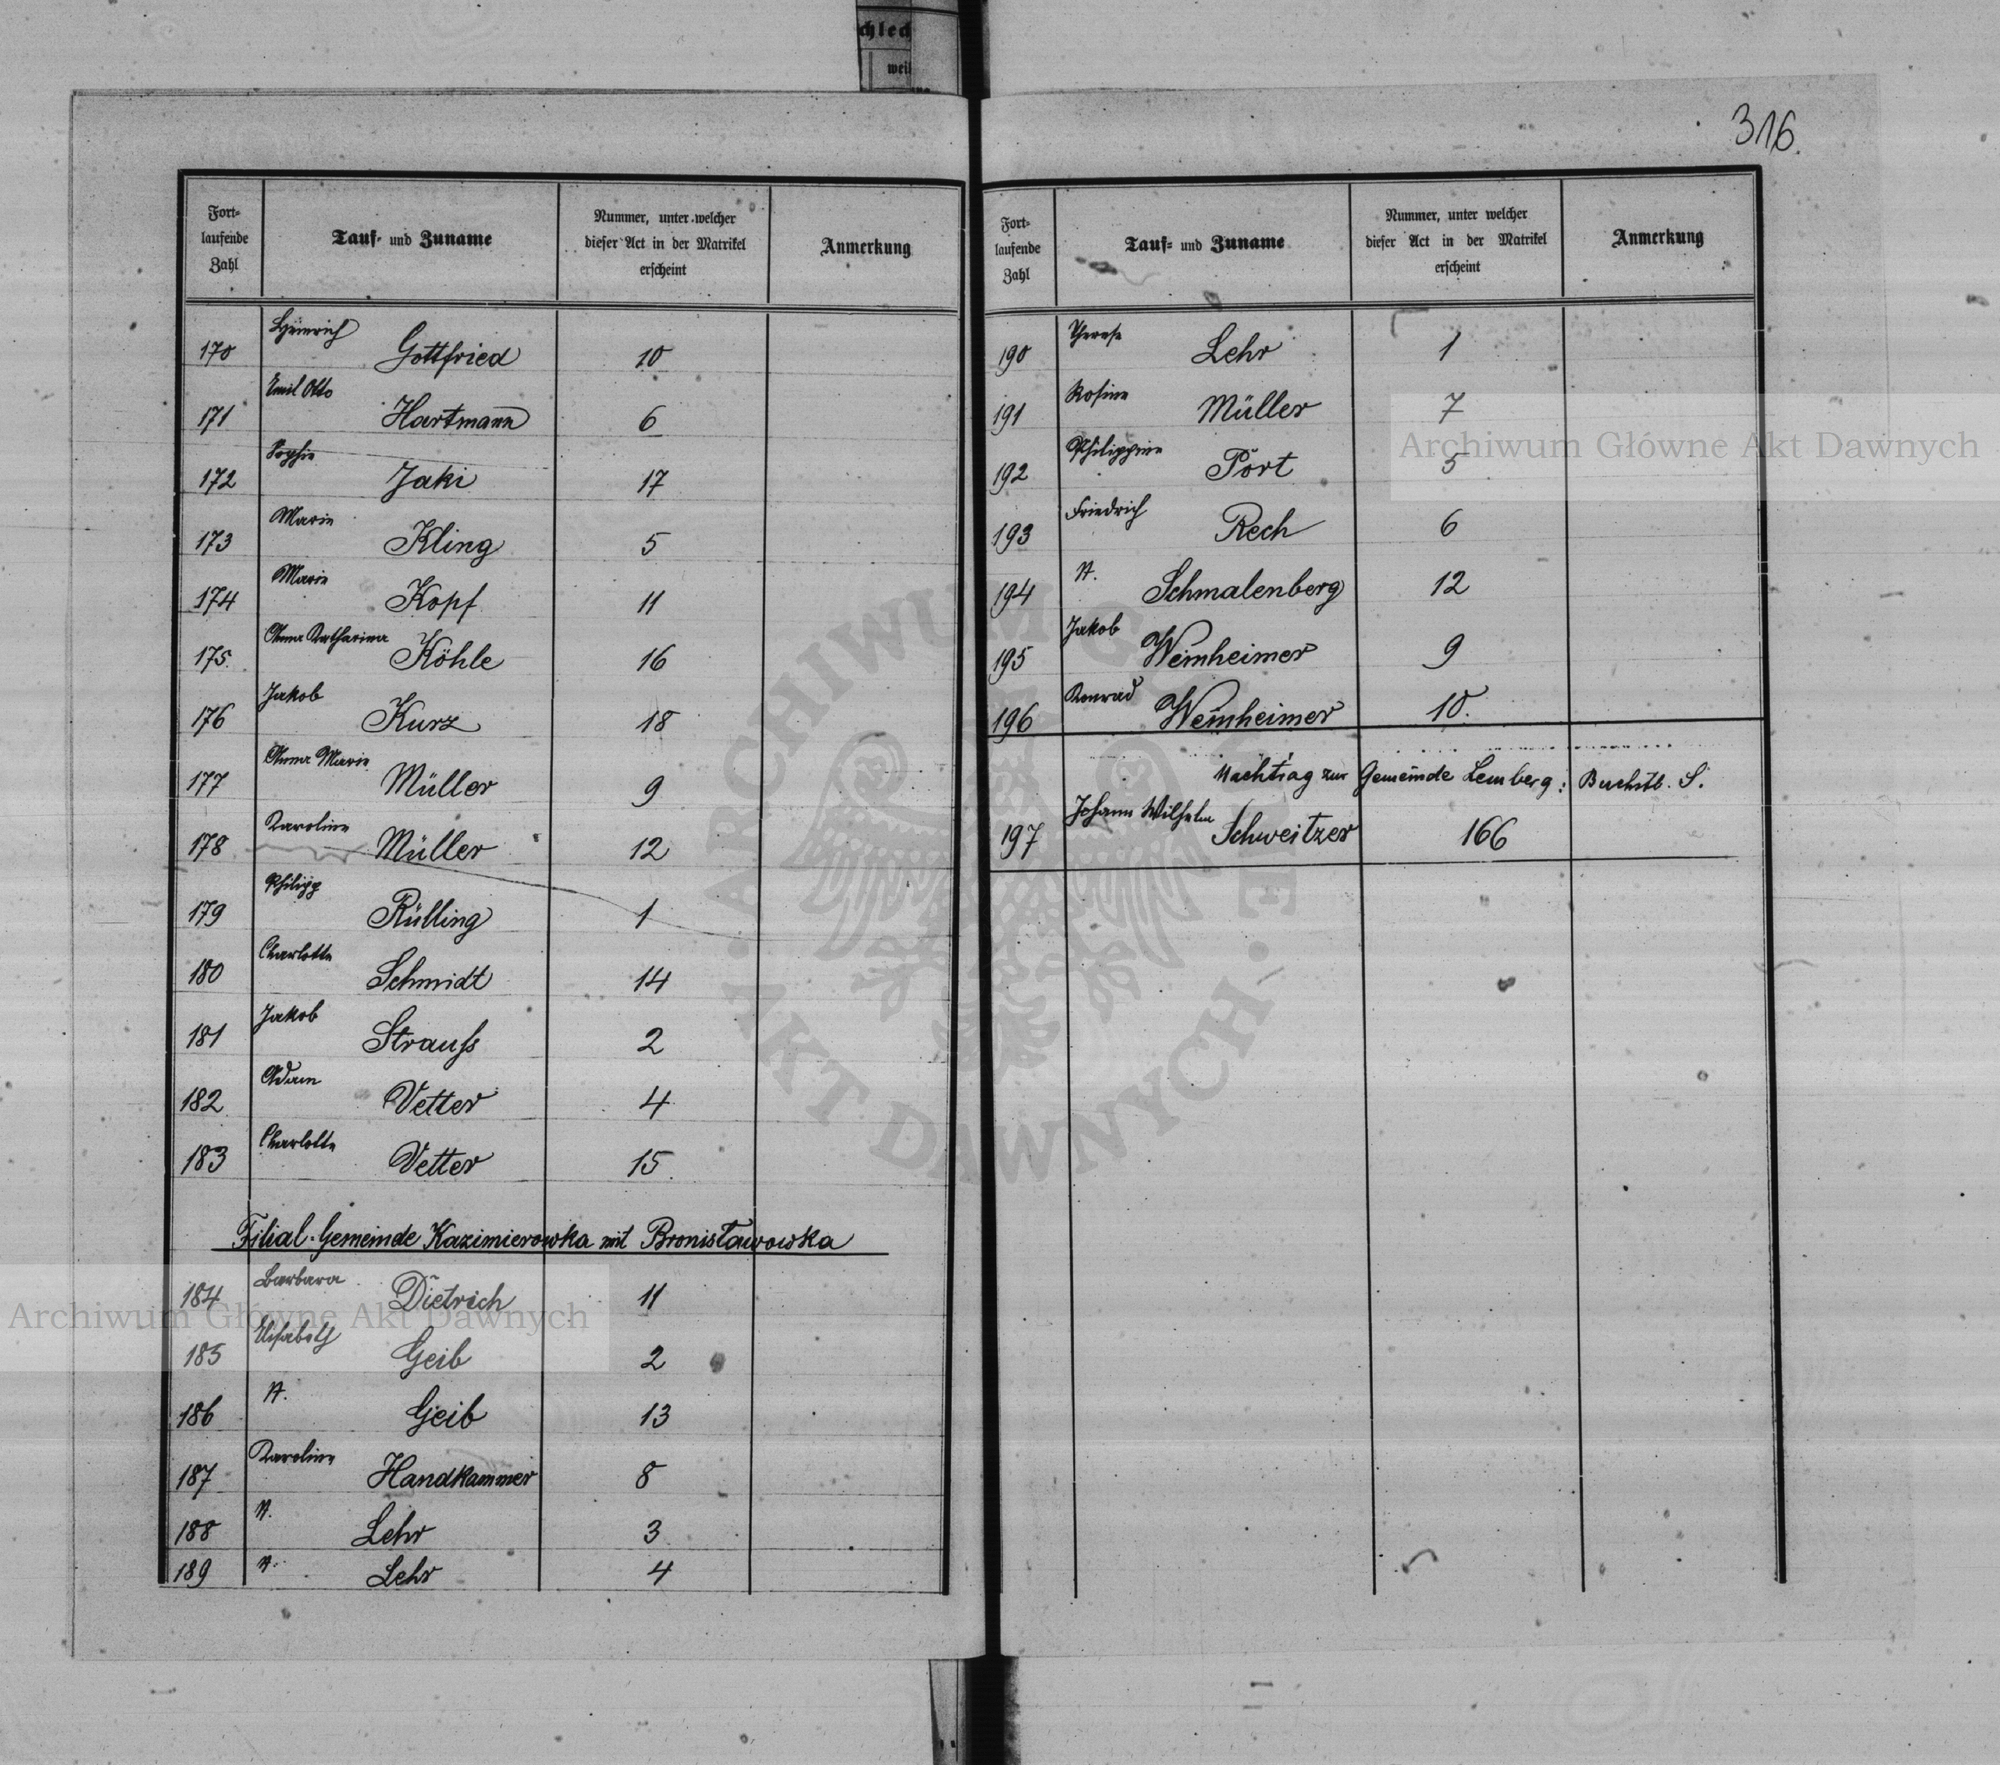 chlech
weil
316.
Fort-
laufende
Zahl
Tauf- und Zuname
Nummer, unter welcher
dieser Act in der Matrikel
erscheint
Anmerkung
170 Heinrich Gottfried 10
171 Emil Otto Hartmann 6
172 Sophie Jaki 17
173 Marie Kling 5
174 Marie Kopf 11
175. Anna Katharina Köhle 16
176 Jakob Kurz 18
177 Anna Marie Müller 9
178 Karoline Müller 12
179 Philipp Rülling 1
180 Charlotte Schmidt 14
181 Jakob Strauss 2
182 Adam Vetter 4
183 Charlotte Vetter 15.
Filial-Gemeinde Kazimierowka mit Bronisławowka
184 Barbara Dietrich 11
185 Elisabeth Geib 2
186 N. Geib 13
187 Karoline Handkammer 8
188 N. Lehr 3
189 N. Lehr 4
Fort-
laufende
Zahl
Tauf- und Zuname
Nummer, unter welcher
dieser Act in der Matrikel
erscheint
Anmerkung
190 Therese Lehr 1
191 Rosine Müller 7
192 Philippine Port 5
193 Friedrich Rech 6
194 N. Schmalenberg 12
195 Jakob Weinheimer 9
196 Konrad Weinheimer 10.
Nachtrag zur Gemeinde Lemberg: Buchstb. S.
197 Johann Wilhelm Schweitzer 166
Archiwum Główne Akt Dawnych
Archiwum Główne Akt Dawnych
ARCHIWUM GŁÓWNE
AKT DAWNYCH